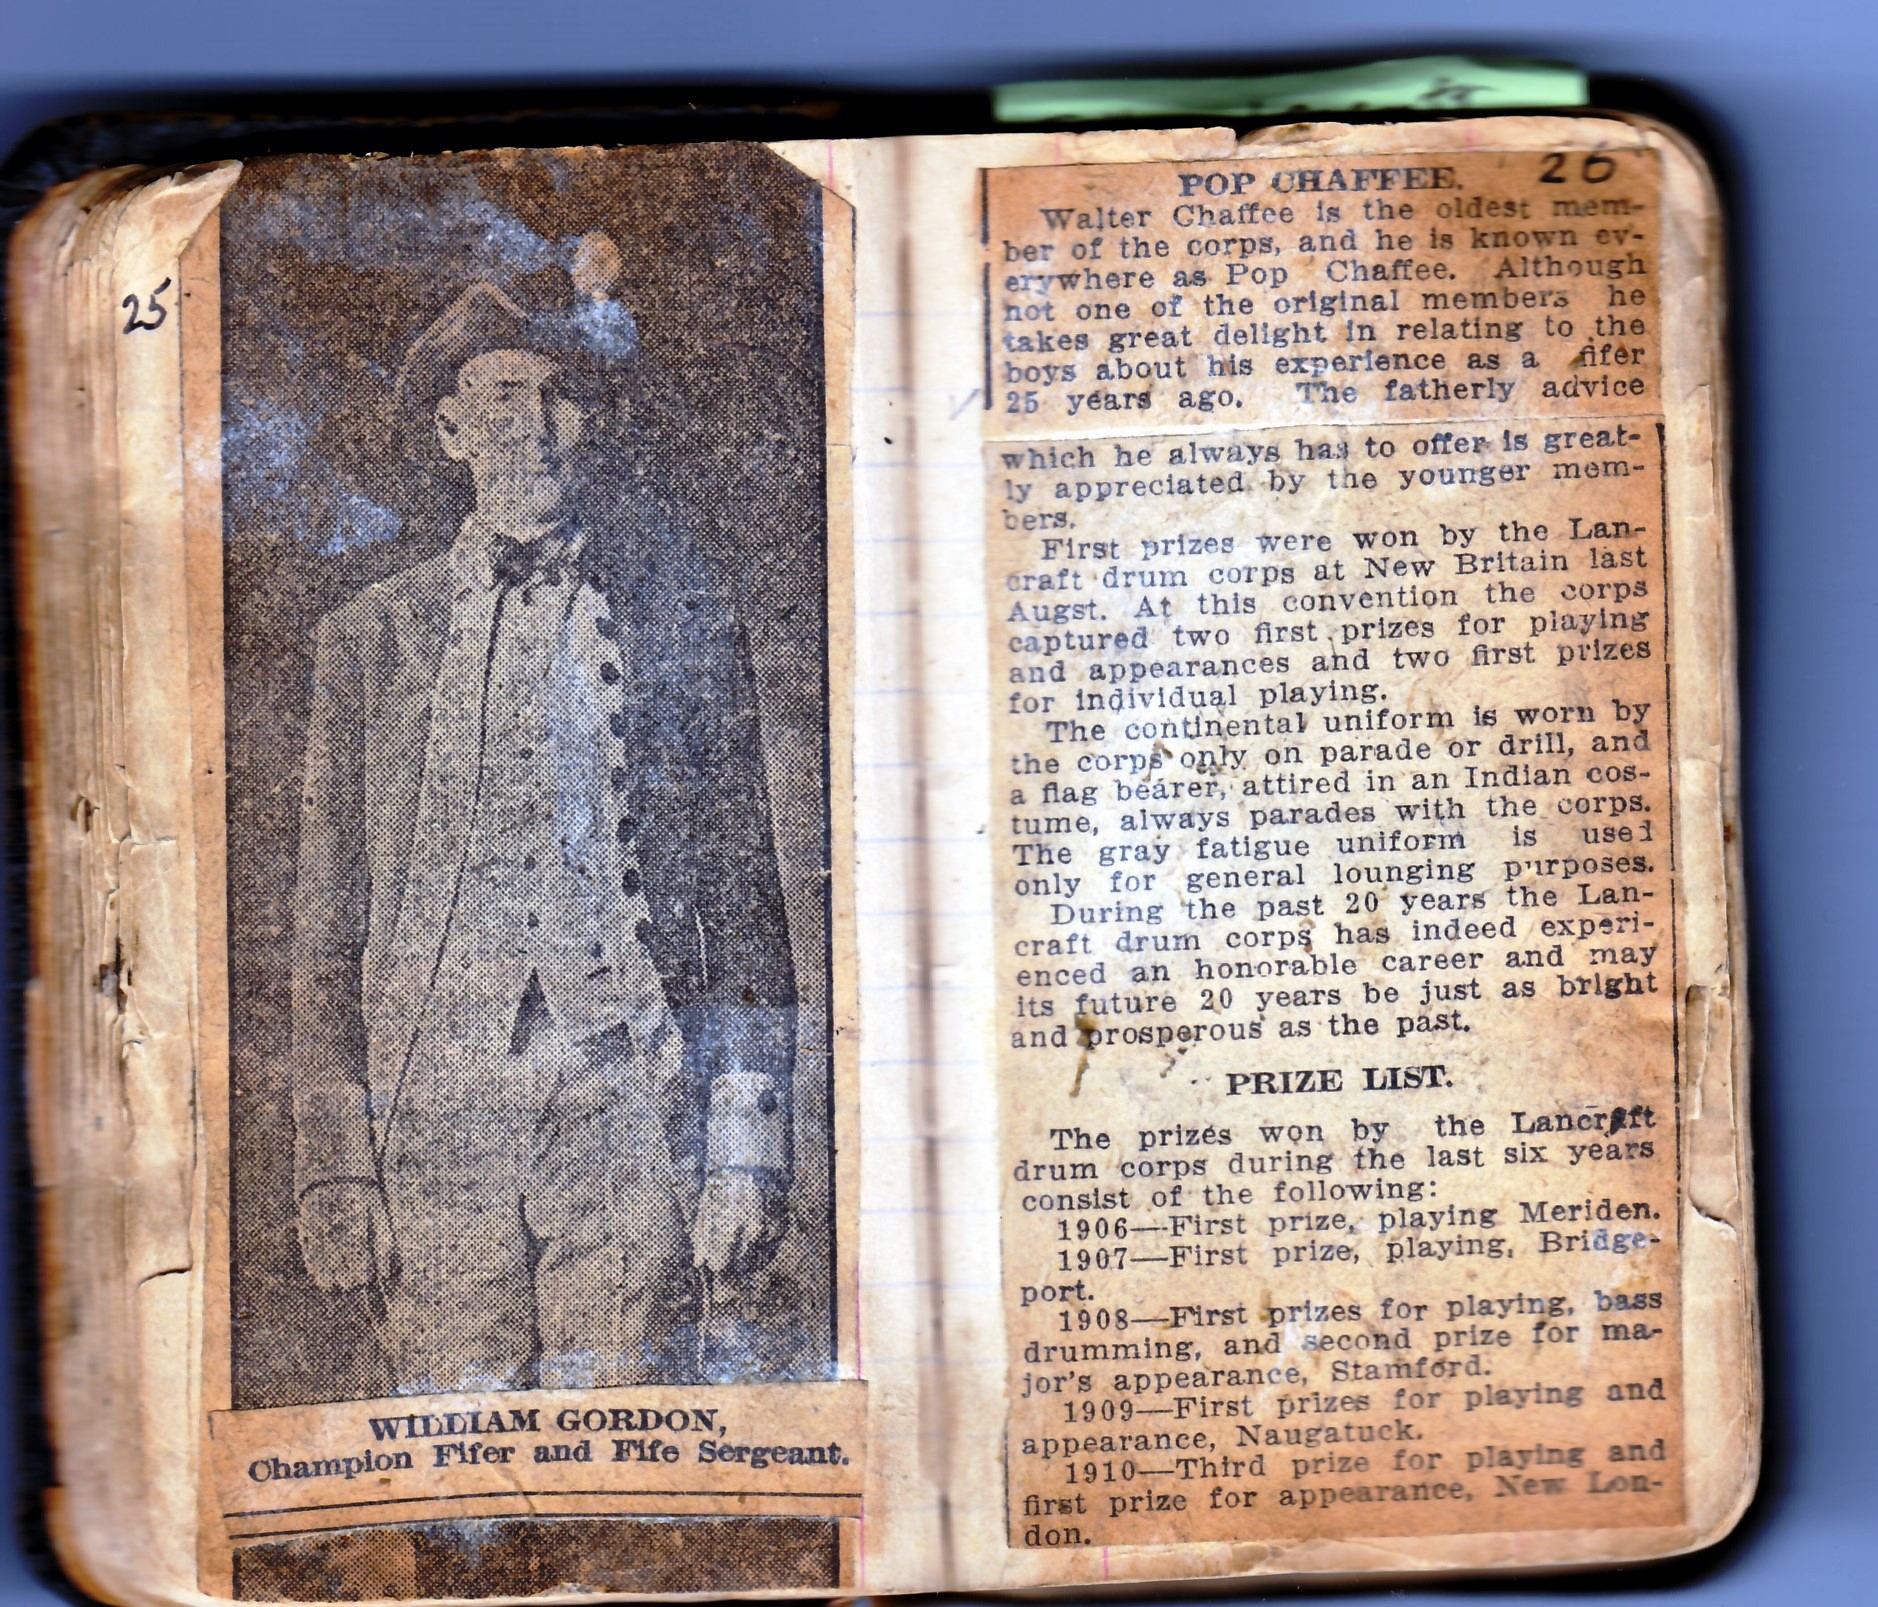 25
WILLIAM GORDON,
Champion Fifer and Fife Sergeant.
26
POP CHAFFEE.
Walter Chaffee is the oldest mem-
ber of the corps, and he is known ev-
erywhere as Pop Chaffee. Although
not one of the original members he
takes great delight in relating to the
boys about his experience as a fifer
25 years ago. The fatherly advice
which he always has to offer is great-
ly appreciated by the younger mem-
bers.
First prizes were won by the Lan-
craft drum corps at New Britain last
Augst. At this convention the corps
captured two first prizes for playing
and appearances and two first prizes
for individual playing.
The continental uniform is worn by
the corps only on parade or drill, and
a flag bearer, attired in an Indian cos-
tume, always parades with the corps.
The gray fatigue uniform is used
only for general lounging purposes.
During the past 20 years the Lan-
craft drum corps has indeed experi-
enced an honorable career and may
its future 20 years be just as bright
and prosperous as the past.
PRIZE LIST.
The prizes won by the Lancraft
drum corps during the last six years
consist of the following:
1906—First prize, playing Meriden.
1907—First prize, playing, Bridge-
port.
1908—First prizes for playing, bass
drumming, and second prize for ma-
jor's appearance, Stamford.
1909—First prizes for playing and
appearance, Naugatuck.
1910—Third prize for playing and
first prize for appearance, New Lon-
don.